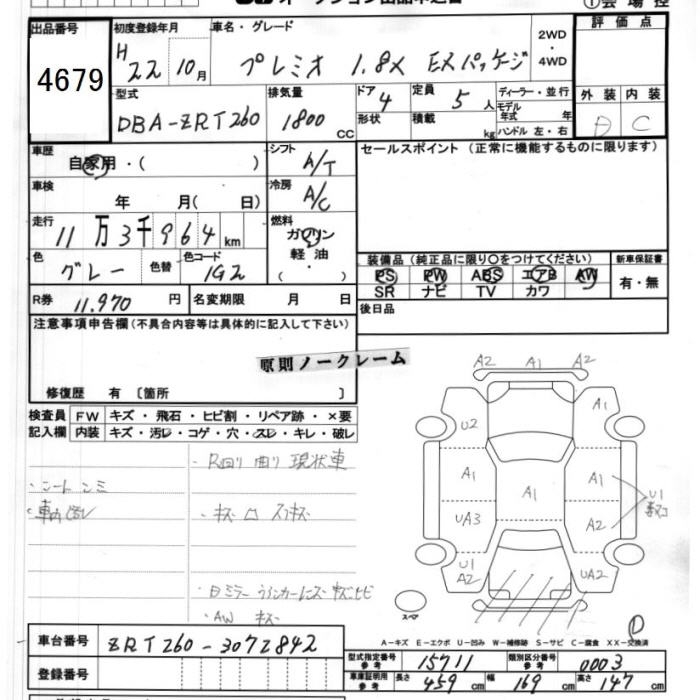 出品番号
4679
初度登録年月
H 22 10月
車名・グレード
プレミオ 1.8X EXパッケージ
2WD・4WD
評価点
型式
DBA-ZRT260
排気量
1800 CC
ドア 4
形状
定員 5人
積載 kg
ディーラー・並行
モデル年式 年
ハンドル 左・右
外装 内装
D C
車歴
自家用・( )
シフト A/T
セールスポイント (正常に機能するものに限ります)
車検
年 月( 日)
冷房 A/C
走行
11万3千964km
燃料
ガソリン
軽油
( ・ )
色 グレー
色替
色コード 1G2
装備品 (純正品に限り○をつけてください)
PS PW ABS エアB AW
SR ナビ TV カワ
新車保証書
有・無
R券 11,970円
名変期限 月 日
後日品
注意事項申告欄 (不具合内容等は具体的に記入して下さい)
原則ノークレーム
修復歴 有 〔箇所 〕
検査員記入欄
FW キズ・飛石・ヒビ割・リペア跡・×要
内装 キズ・汚レ・コゲ・穴・スレ・キレ・破レ
・R回り曲り 現状車
・シートシミ
・車内汚レ
・AW キズ
A2 A1 A2
U2 A1
A1 A1 A1
UA3 A2
U1
U1 A2 UA2
スペア
D
A-キズ E-エクボ U-凹み W-補修跡 S-サビ C-腐食 XX-交換済
車台番号 ZRT260-3072842
登録番号
型式指定番号 参考 15711
類別区分番号 参考 0003
車庫証明用 参考 長さ 459cm 幅 169cm 高さ 147cm